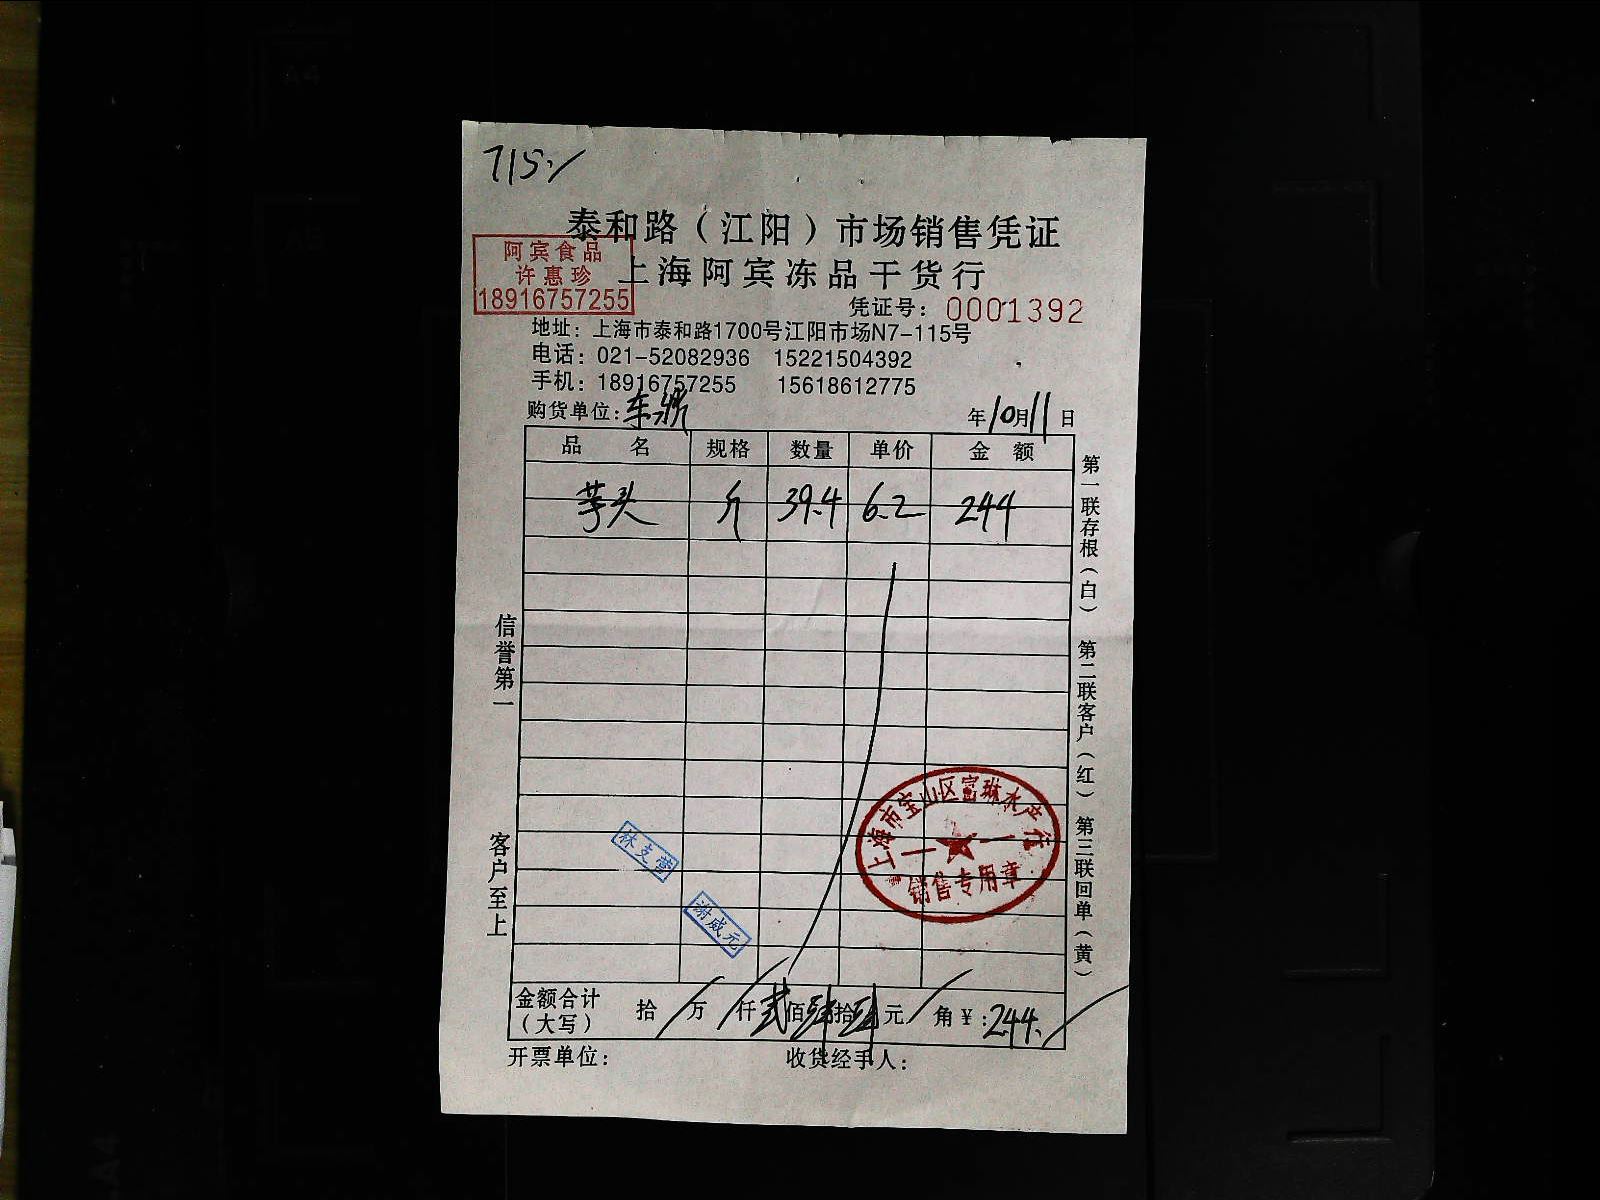 715.
泰和路（江阳）市场销售凭证
阿宾食品
许惠珍
18916757255
上海阿宾冻品干货行
凭证号：0001392
地址：上海市泰和路1700号江阳市场N7-115号
电话：021-52082936 15221504392
手机：18916757255 15618612775
购货单位： 年10月11日
品名 规格 数量 单价 金额
芋头 斤 39.4 6.2 244
第一联存根（白） 第二联客户（红） 第三联回单（黄）
信誉第一
客户至上
上海市宝山区富琳水产行
销售专用章
林支营
谢咸元
金额合计（大写） 拾/万/仟贰佰肆拾肆元/角￥：244.
开票单位： 收货经手人：
A4
A5
A4